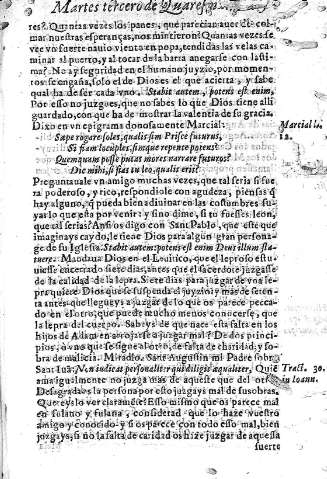 Martes tercero de Quaresma.
res? Quantas vezes los panes, que parecian auer de col-
mar nuestras esperanças, nos mintieron? Quantas vezes se
vee vn fuerte nauio viento en popa, tendidas las velas ca-
minar al puerto, y al tocar de la barra anegarse con lasti-
ma? No ay seguridad en el humano juyzio, por momen-
tos se engaña, solo el de Dios es el que acierta, y sabe
qual ha de ser cada vno. Stabit autem, potens est enim,
Por esso no juzgues, que no sabes lo que Dios tiene alli
guardado, con que ha de mostrar la valentia de su gracia.
Dixo en vn epigrama donosamente Marcial:
Marcial li.
12.
Sæpe rogare soles, qualis sim Prisce futurus,
Si fiam locuples, simque repente potens?
Quemquam posse putas mores narrare futuros?
Dic mihi, si fias tu leo, qualis eris?
Preguntauale vn amigo muchas vezes, que tal seria si fue
ra poderoso, y rico, respondiole con agudeza, piensas q̃
hay alguno, q̃ pueda bien adiuinar en las costumbres su-
yas lo que esta por venir: y sino dime, si tu fuesses leon,
que tal serias? Anfi os digo con Sant Pablo, que este que
imaginays caydo, le tiene Dios para algun gran persona-
ge de su Iglesia. Stabit autem: potens est enim Deus illum sta-
tuere. Mandaua Dios en el Leuitico, que el leproso estu-
uiesse encerrado siete dias, antes que el sacerdote juzgasse
de la calidad de la lepra. Siete dias para juzgar de vna le-
pra quiere Dios que se suspenda el juyzio: y mas de seten
ta antes que llegueys a juzgar de lo que os parece pecca-
do en el otro, que puede mucho menos conocerse, que
la lepra del cuerpo. Sabeys de que nace esta falta en los
hijos de Adam en arrojarse a juzgar mal? De dos princi-
pios, o a vno que se sigue al otro, de falta de charidad, y so-
bra de malicia. Miradlo. Sant Augustin mi Padre sobre
Sant Iuã: Non iudicat personaliter qui diligit æqualiter, Quie
Tract. 30.
in Ioann.
ama igualmente no juzga mas de aqueste que del otro.
Desagradays la persona por esto juzgays mal de sus obras.
Quereys lo ver claramente? Esso mismo que os parece mal
en fulano y fulana, considerad que lo haze vuestro
amigo y conocido: y si os parece con todo esso mal, bien
juzgays, si no la falta de caridad os haze juzgar de aquessa
suerte